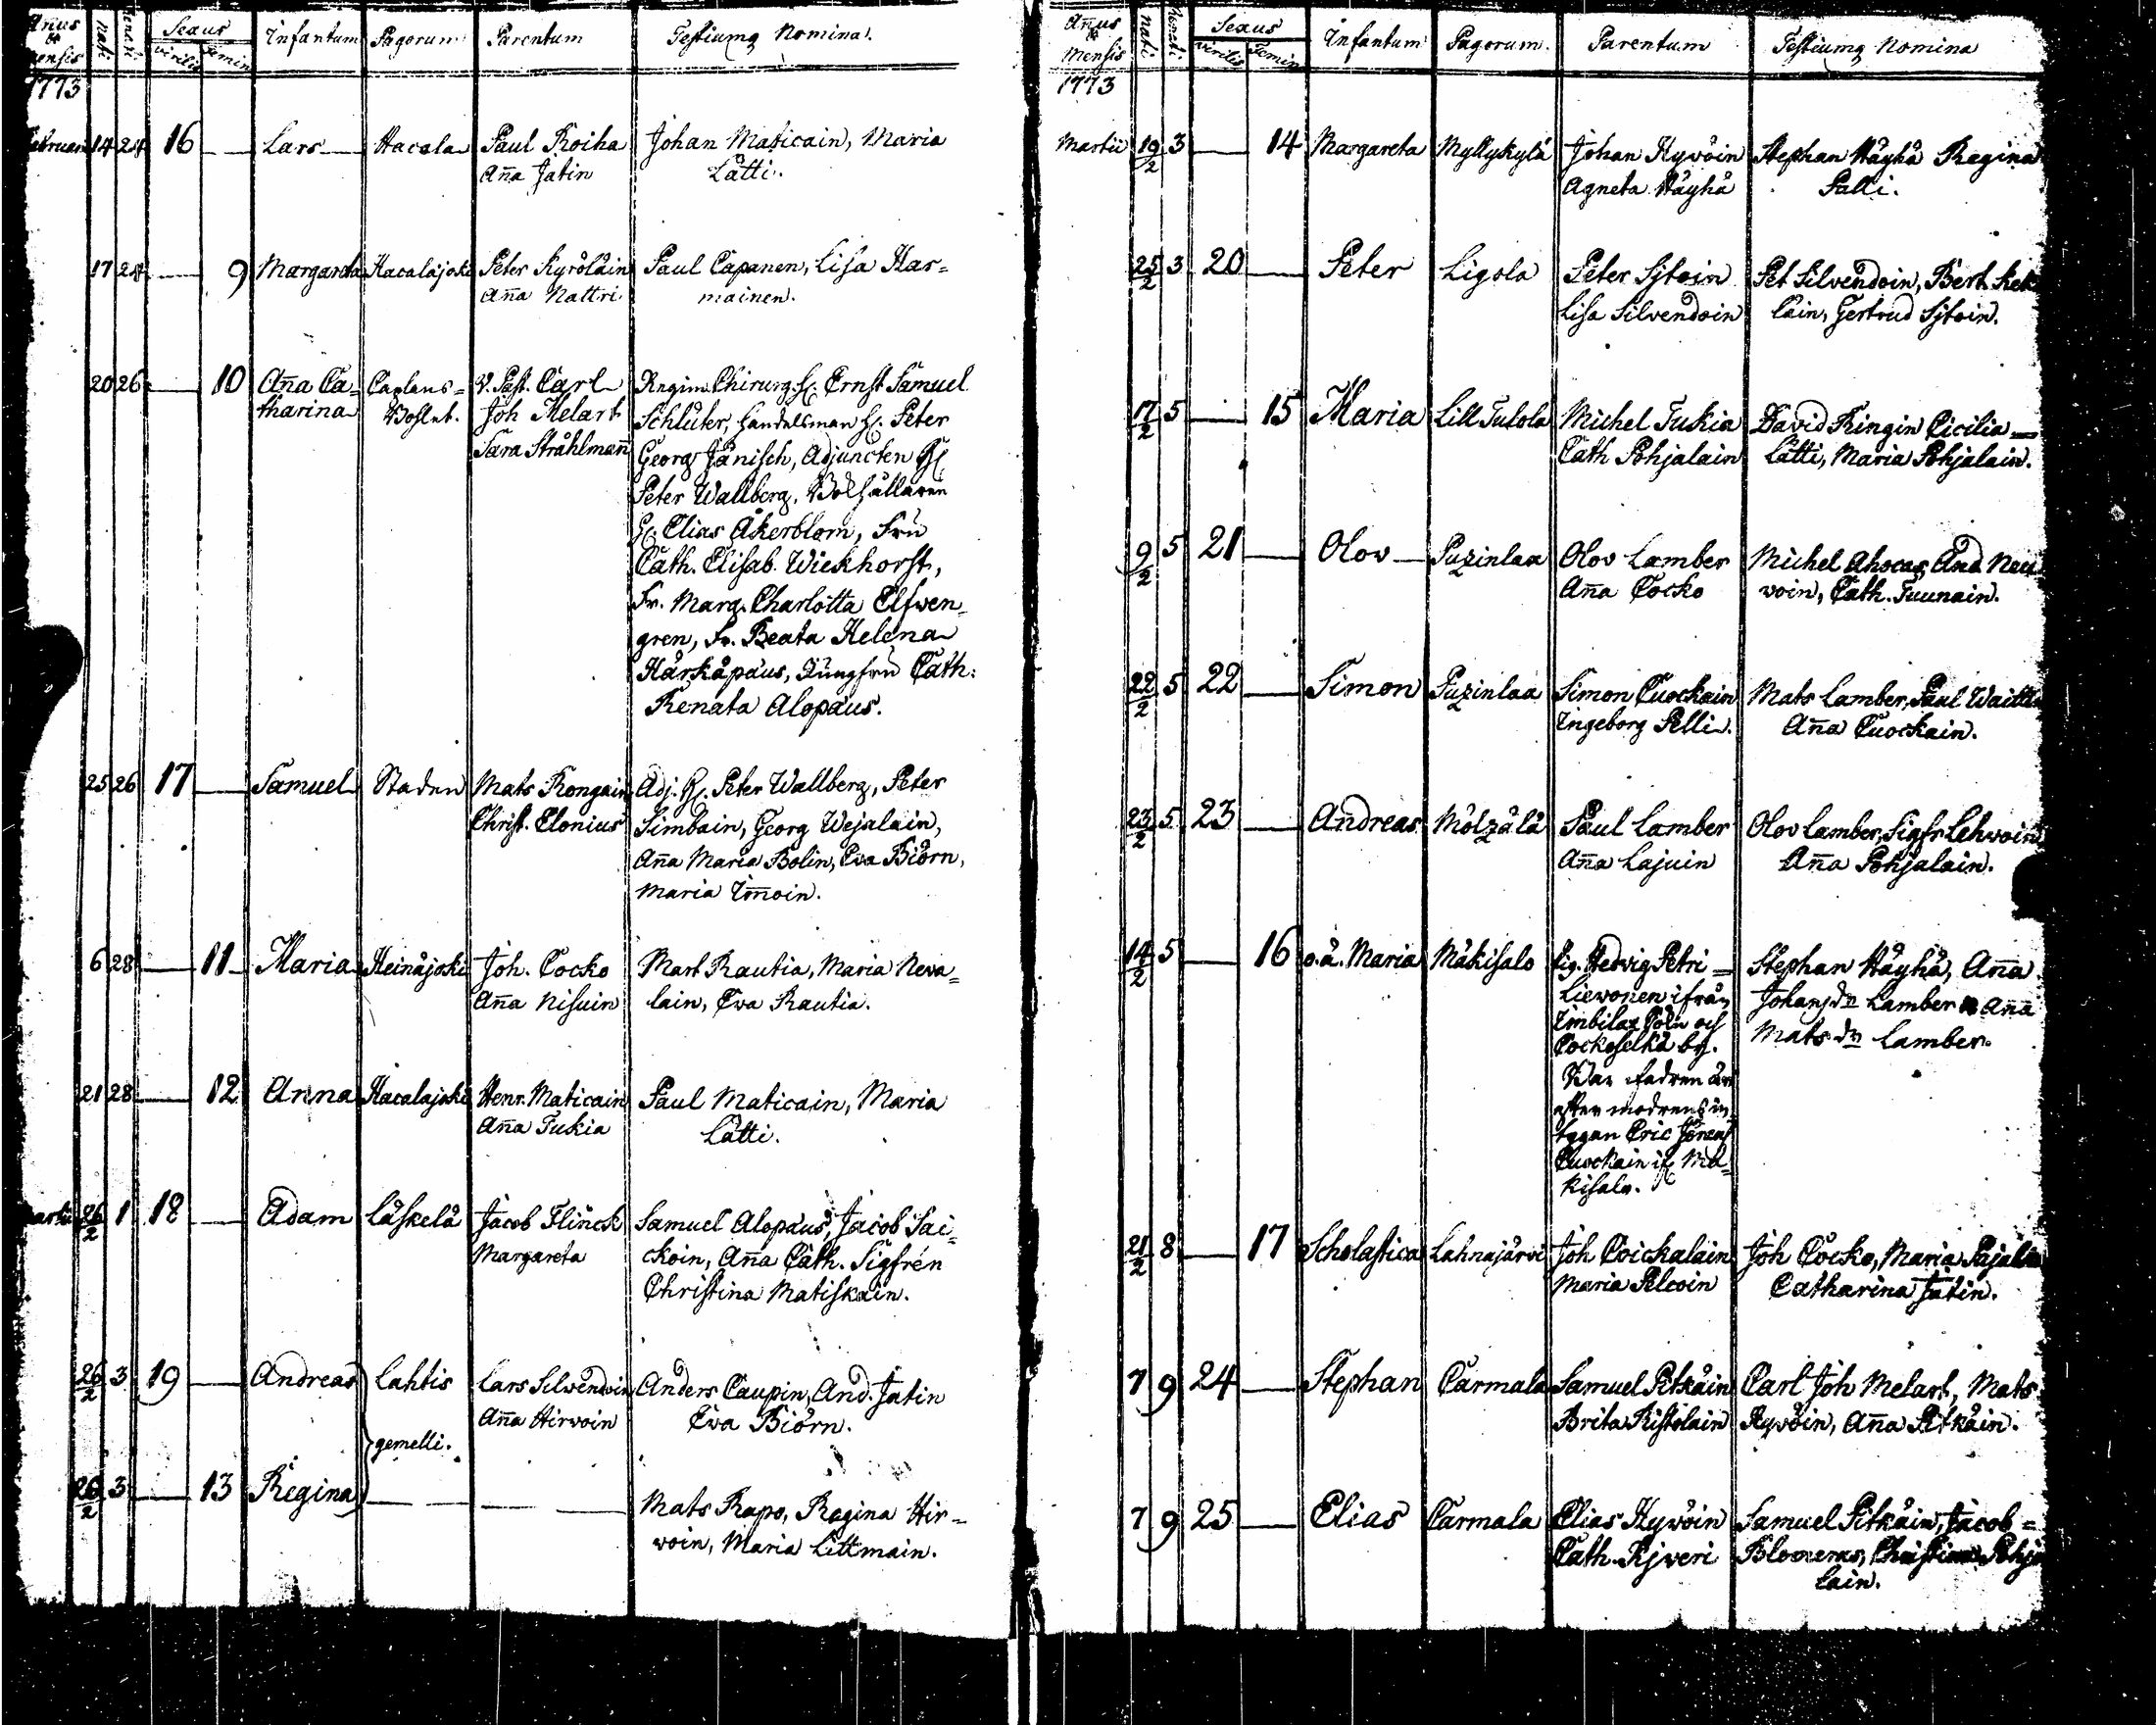 Anus & Mensis Nati. Renati. Sexus virilis Femin Infantum Pagorum Parentum Testiumq Nomina.
1773
Februari 14 24 16 — Lars Hacala Paul Roiha Johan Maticain, Maria
Aña Jatin Lätti.
17 24 — 9 Margareta Hacalajoki Peter Kyröläin Paul Capanen, Lisa Har=
Aña Nattri mainen.
20 26 — 10 Aña Ca= Caplans= V. Past. Carl Regim. Chirurg. H. Ernst Samuel
tharina Bohlet. Joh Melart Schlüter, Handelsman H. Peter
Sara Stråhlmañ Georg Jänisch, Adjuncten H.
Peter Wallberg, Bokhållaren
H. Elias Åkerblom, Fru
Cath. Elisab. Wiekhorst,
Fr. Marg. Charlotta Elfwen=
gren, Fr. Beata Helena
Härkäpäus, Jungfru Cath:
Renata Alopäus.
25 26 17 — Samuel Staden Mats Rongain Adj. H. Peter Wallberg, Peter
Christ. Clonius Simbain, Georg Wejalain,
Aña Maria Bolin, Eva Biörn,
Maria Im̄oin.
6 28 — 11 Maria Heinäjoki Joh. Cocko Mart Rautia, Maria Neva=
Aña Nisuin lain, Eva Rautia.
21 28 — 12 Anna Hacalajoki Henr. Maticain Paul Maticain, Maria
Aña Tukia Lätti.
Martii 26/2 1 18 — Adam Läskelä Jacob Flinck Samuel Alopäus, Jacob Sai=
Margareta ckoin, Aña Cath. Sigfrén
Christina Matiskain.
26/2 3 19 — Andreas Lahtis Lars Silvendoin Anders Caupin, And. Jatin
Aña Hirvoin Eva Biörn.
gemelli.
26/2 3 — 13 Regina — — — Mats Rapo, Regina Hir=
voin, Maria Littmain.
Añus & Mensis Nati. Renati. Sexus virilis Femin Infantum Pagorum. Parentum Testiumq Nomina
1773
Martii 19/2 3 — 14 Margareta Myllykylä Johan Hyvöin Stephan Häyhä Regina
Agneta Häyhä Palli.
25/2 3 20 — Peter Ligola Peter Sjtoin Pet Silvendoin, Bert. Kek
Lisa Silvendoin läin, Gertrud Sjtoin.
17/2 5 — 15 Maria Lill Tulola Michel Tukia David Ringin Cicilia
Cath Pohjalain Lätti, Maria Pohjalain.
9/2 5 21 — Olov Puzinlaa Olov Lamber Michel Ahocas, And. Neu
Aña Cocko voin, Cath. Tuunain.
22/2 5 22 — Simon Puzinlaa Simon Cuockain Mats Lamber, Paul Waitti
Ingeborg Pelli. Aña Cuockain.
23/2 5 23 — Andreas Mölzälä Paul Lamber Olov Lamber, Sigfr Lehvoin
Aña Lajuin Aña Pohjalain.
14/2 5 — 16 o.ä. Maria Mäkisalo Pig. Hedvig Petri= Stephan Häyhä, Aña
Liewonen ifrån Johansdr Lamber Aña
Imbilax Sokn och Mats dr Lamber.
Cockoselkä by.
Barnfadren är
efter modrens in
tygan Eric Jöransr
Cuockain if. Mä=
kisalo.
21/2 8 — 17 Scholastica Lahnajärvi Joh Coickalain Joh Cocko, Maria Pajalin
Maria Pelcoin Catharina Jatin.
7 9 24 — Stephan Carmala Samuel Pitkäin Carl Joh Melart, Mats
Brita Ristolain Hyvöin, Aña Pitkäin.
7 9 25 — Elias Carmala Elias Hyvöin Samuel Pitkäin, Jacob=
Cath. Kjveri Blomerus, Christina Pohja
lain.